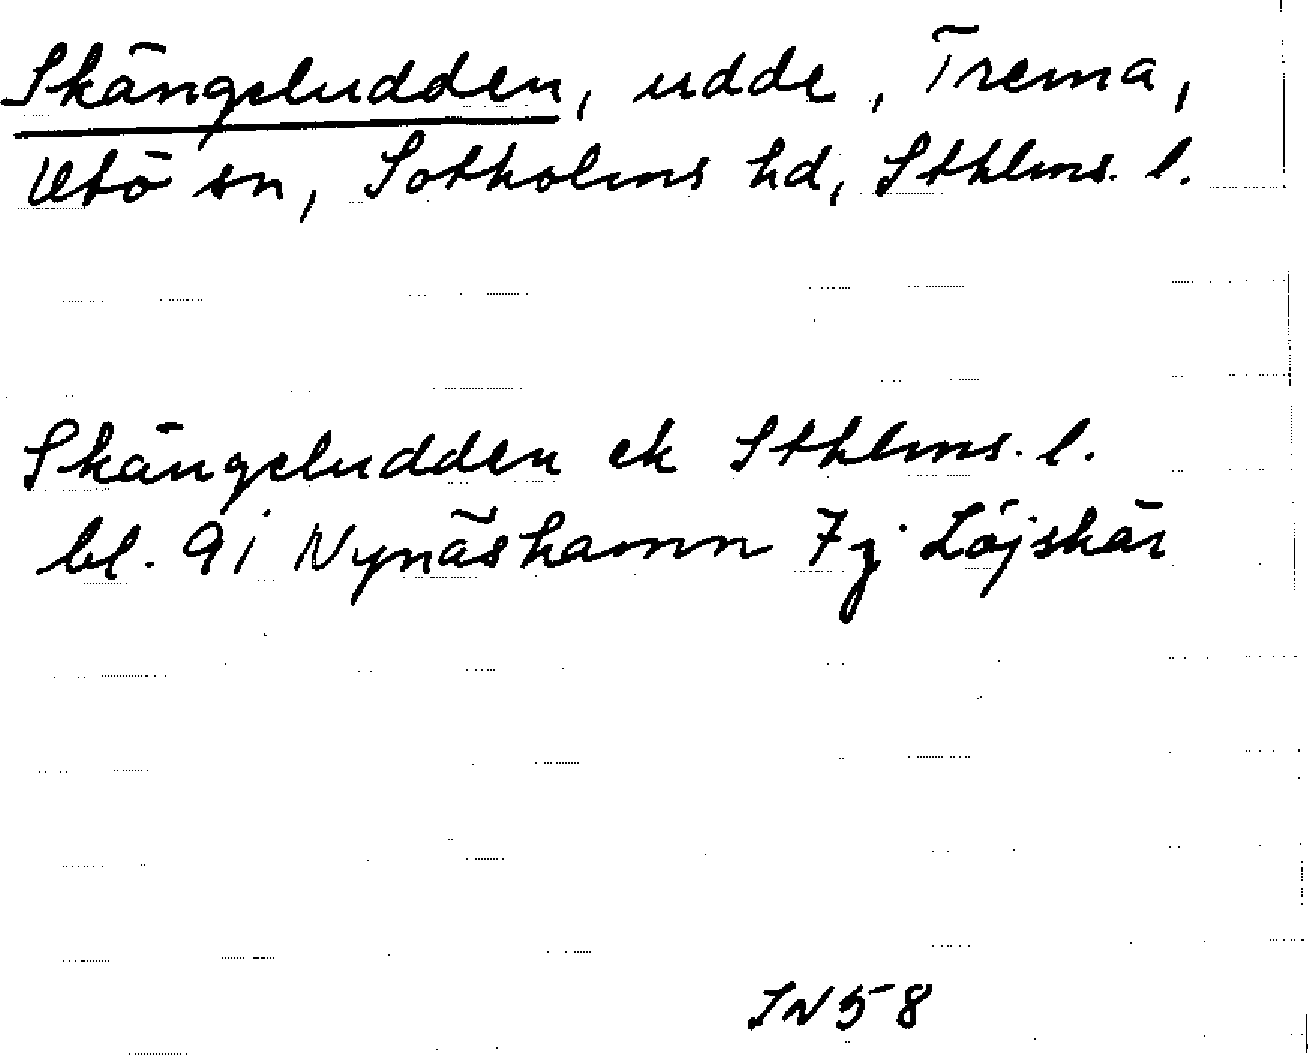 Skängeludden, udde, Trema,
Utö sn, Sotholms hd, Sthlms. l.
Skängeludden ek Sthlms. l.
bl. 9i Nynäshamn 7j Löjskär
IN58